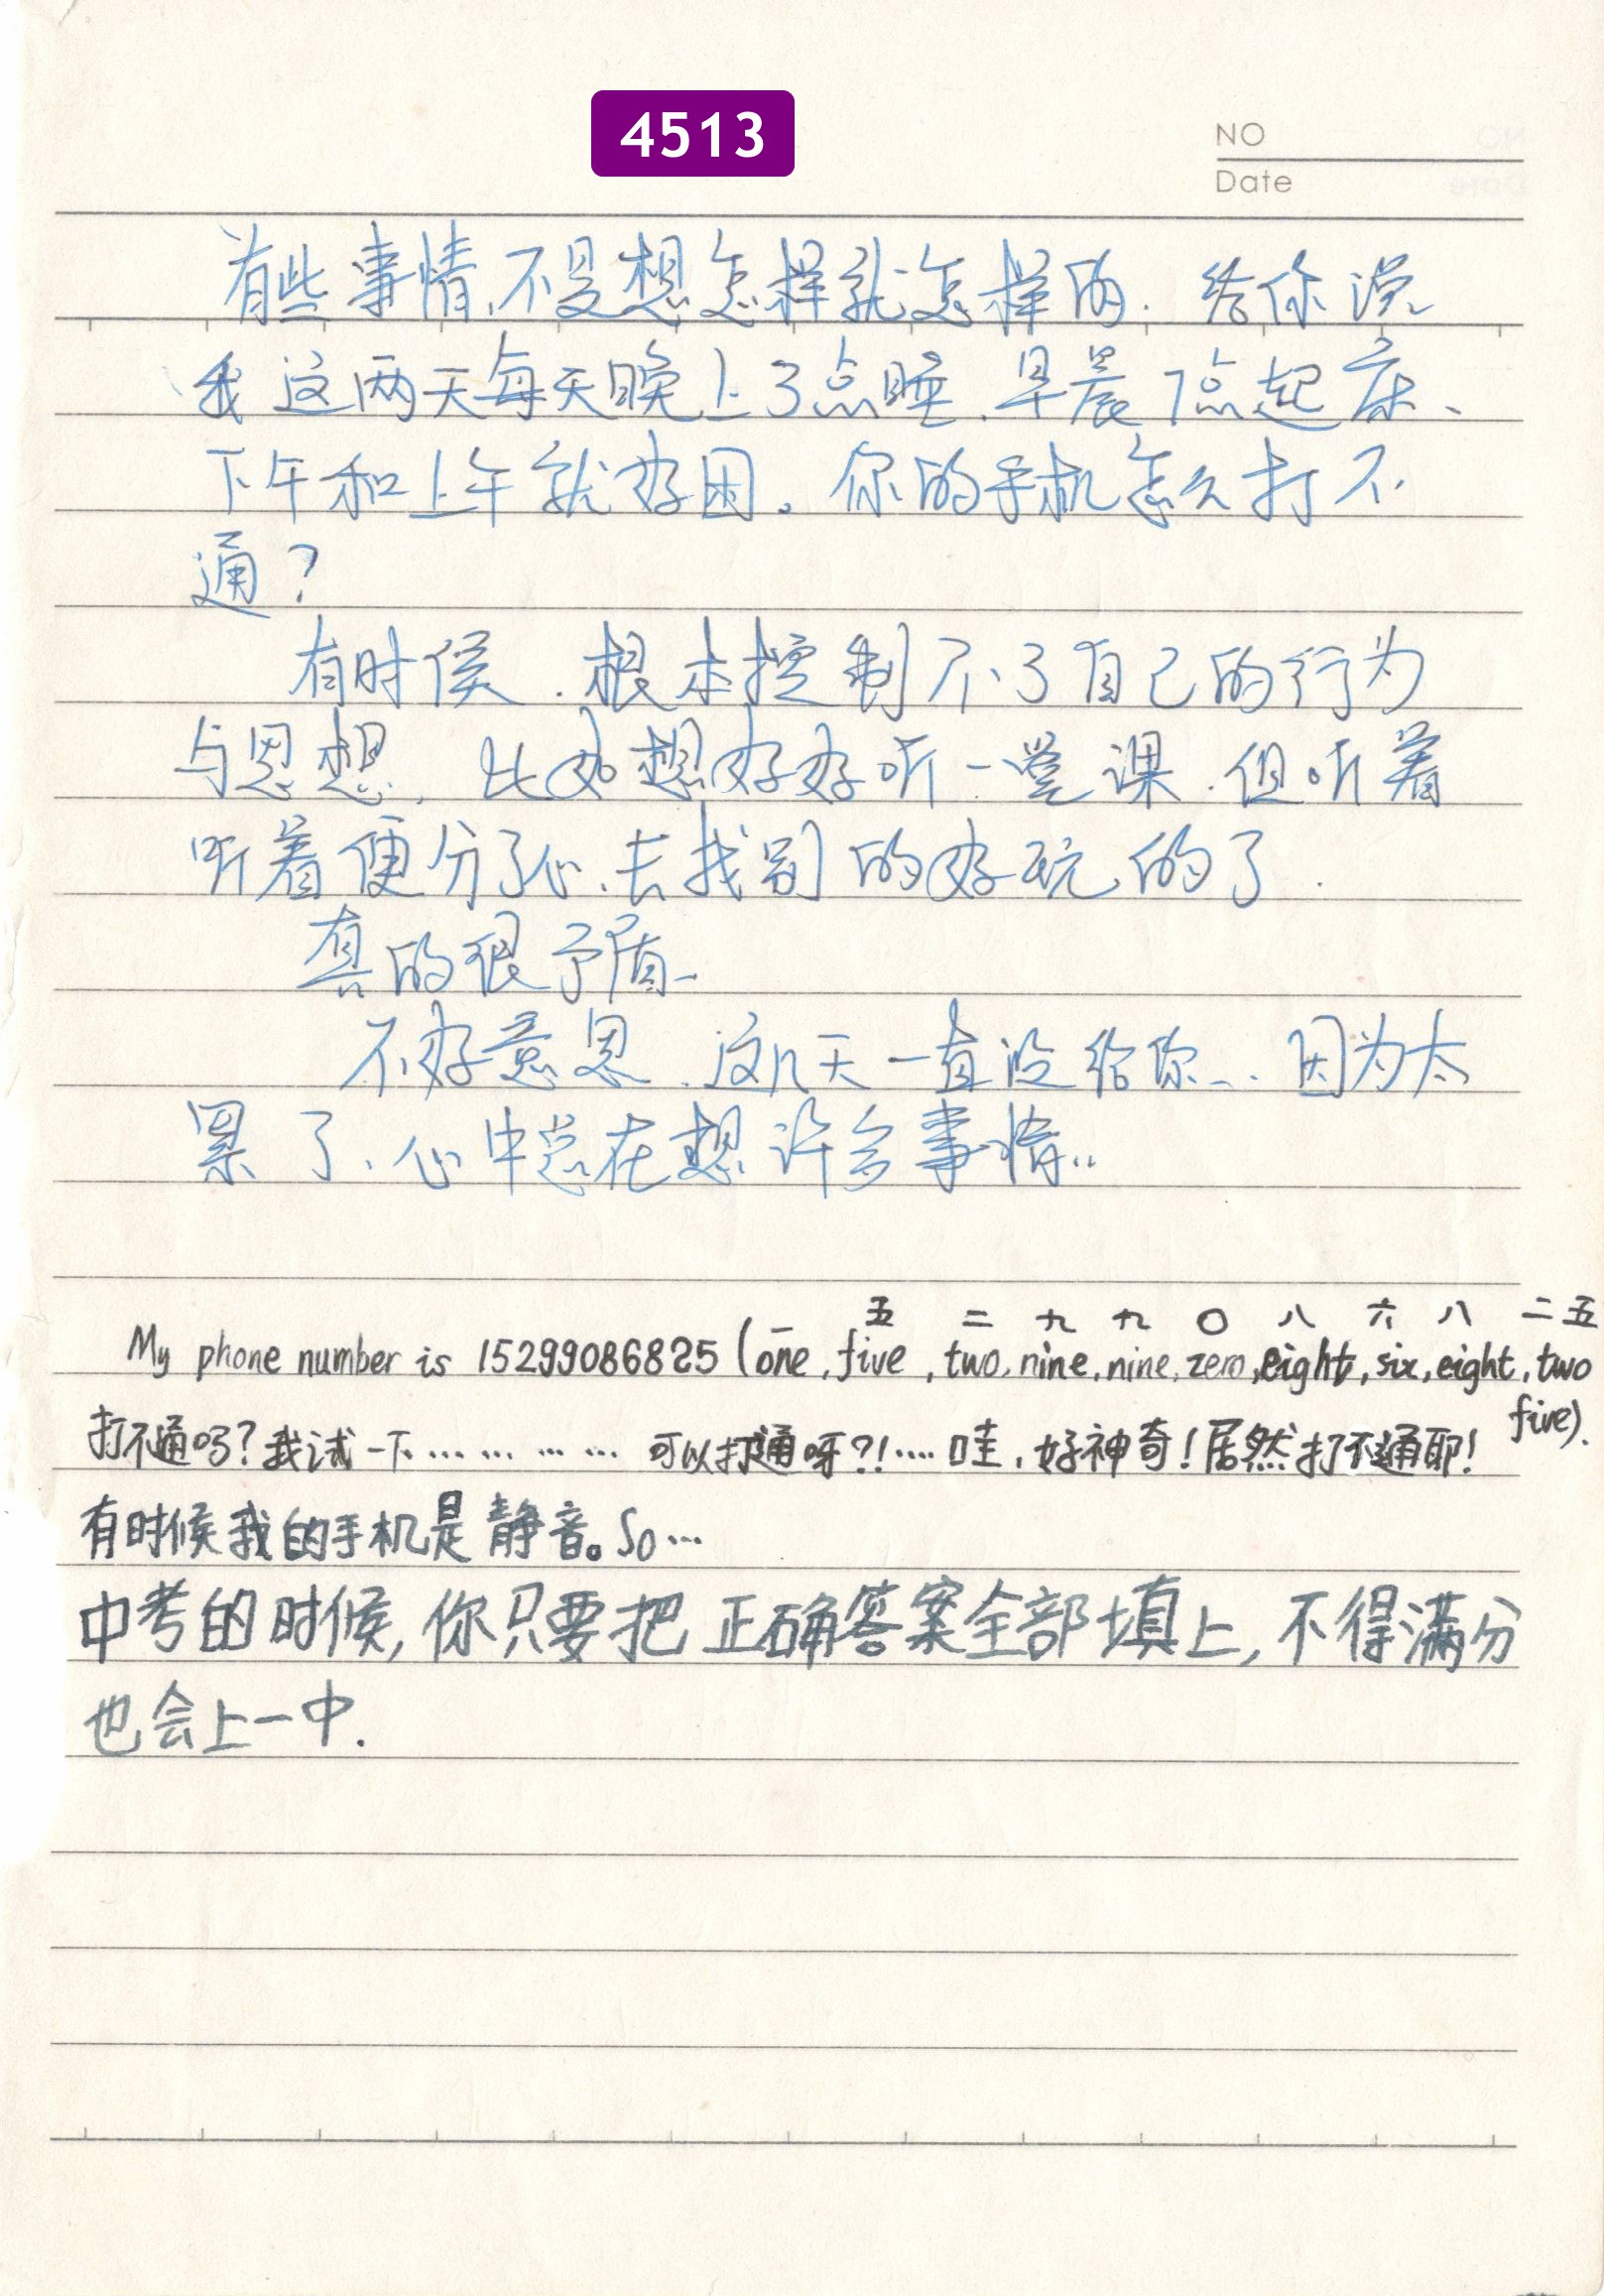 4513
NO
Date
有些事情、不是想怎样就怎样的. 给你说
我这两天每天晚上3点睡、早晨7点起床、
下午和上午就好困。你的手机怎么打不
通？
有时候.根本控制不了自己的行为
与思想, 比如想好好听一堂课.但听着
听着便分了心、去找别的好玩的了.
真的很矛盾_
不好意思.这几天一直没给你... 因为太
累了、心中总在想许多事情..
一 五 二 九 九 〇 八 六 八 二 五
My phone number is 15299086825 (one, five, two, nine, nine, zero, eight, six, eight, two
five).
打不通吗？我试一下………… 可以打通呀?!…… 哇, 好神奇！居然打不通耶！
有时候我的手机是静音。So…
中考的时候, 你只要把正确答案全部填上, 不得满分
也会上一中.